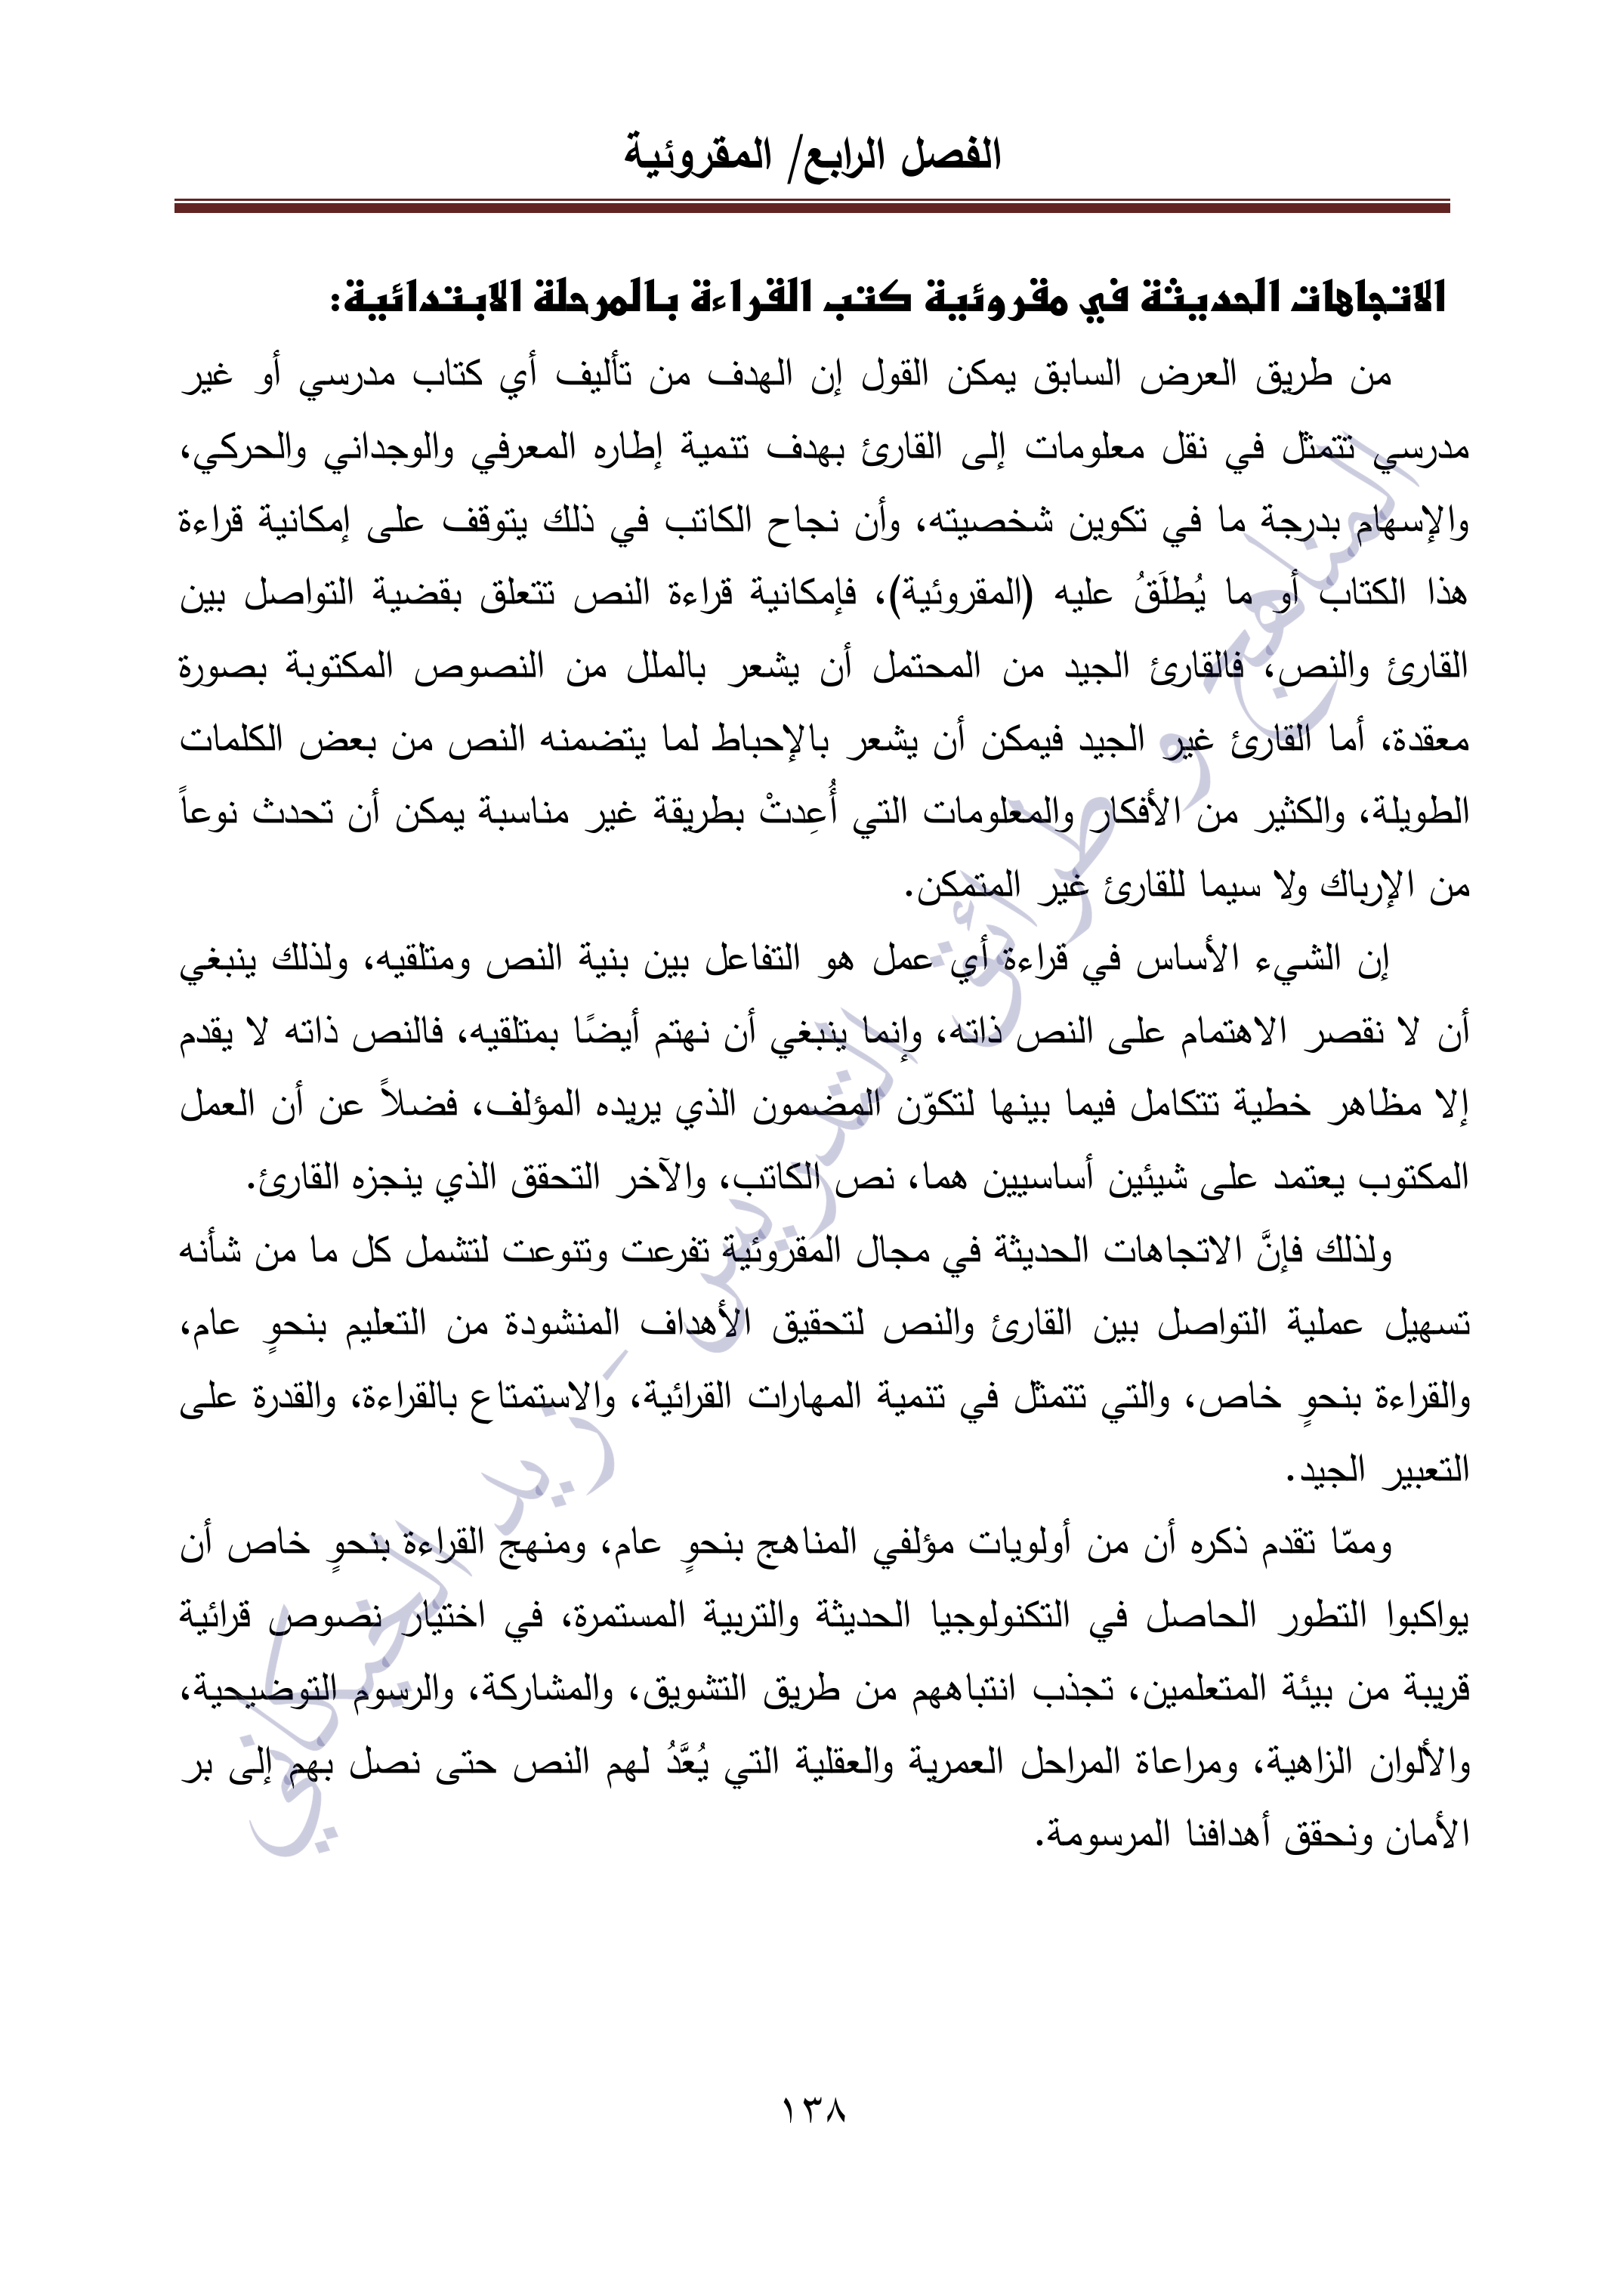 الفصل الرابع/ المقروئية
الاتجاهات الحديثة في مقروئية كتب القراءة بالمرحلة الابتدائية:
من طريق العرض السابق يمكن القول إن الهدف من تأليف أي كتاب مدرسي أو غير
مدرسي تتمثل في نقل معلومات إلى القارئ بهدف تنمية إطاره المعرفي والوجداني والحركي،
والإسهام بدرجة ما في تكوين شخصيته، وأن نجاح الكاتب في ذلك يتوقف على إمكانية قراءة
هذا الكتاب أو ما يُطلَقُ عليه (المقروئية)، فإمكانية قراءة النص تتعلق بقضية التواصل بين
القارئ والنص، فالقارئ الجيد من المحتمل أن يشعر بالملل من النصوص المكتوبة بصورة
معقدة، أما القارئ غير الجيد فيمكن أن يشعر بالإحباط لما يتضمنه النص من بعض الكلمات
الطويلة، والكثير من الأفكار والمعلومات التي أُعِدتْ بطريقة غير مناسبة يمكن أن تحدث نوعاً
من الإرباك ولا سيما للقارئ غير المتمكن.
إن الشيء الأساس في قراءة أي عمل هو التفاعل بين بنية النص ومتلقيه، ولذلك ينبغي
أن لا نقصر الاهتمام على النص ذاته، وإنما ينبغي أن نهتم أيضًا بمتلقيه، فالنص ذاته لا يقدم
إلا مظاهر خطية تتكامل فيما بينها لتكوّن المضمون الذي يريده المؤلف، فضلاً عن أن العمل
المكتوب يعتمد على شيئين أساسيين هما، نص الكاتب، والآخر التحقق الذي ينجزه القارئ.
ولذلك فإنَّ الاتجاهات الحديثة في مجال المقروئية تفرعت وتنوعت لتشمل كل ما من شأنه
تسهيل عملية التواصل بين القارئ والنص لتحقيق الأهداف المنشودة من التعليم بنحوٍ عام،
والقراءة بنحوٍ خاص، والتي تتمثل في تنمية المهارات القرائية، والاستمتاع بالقراءة، والقدرة على
التعبير الجيد.
وممّا تقدم ذكره أن من أولويات مؤلفي المناهج بنحوٍ عام، ومنهج القراءة بنحوٍ خاص أن
يواكبوا التطور الحاصل في التكنولوجيا الحديثة والتربية المستمرة، في اختيار نصوص قرائية
قريبة من بيئة المتعلمين، تجذب انتباههم من طريق التشويق، والمشاركة، والرسوم التوضيحية،
والألوان الزاهية، ومراعاة المراحل العمرية والعقلية التي يُعَّدُ لهم النص حتى نصل بهم إلى بر
الأمان ونحقق أهدافنا المرسومة.
المناهج و طرائق التدريس - زيد الخيكاني
١٣٨